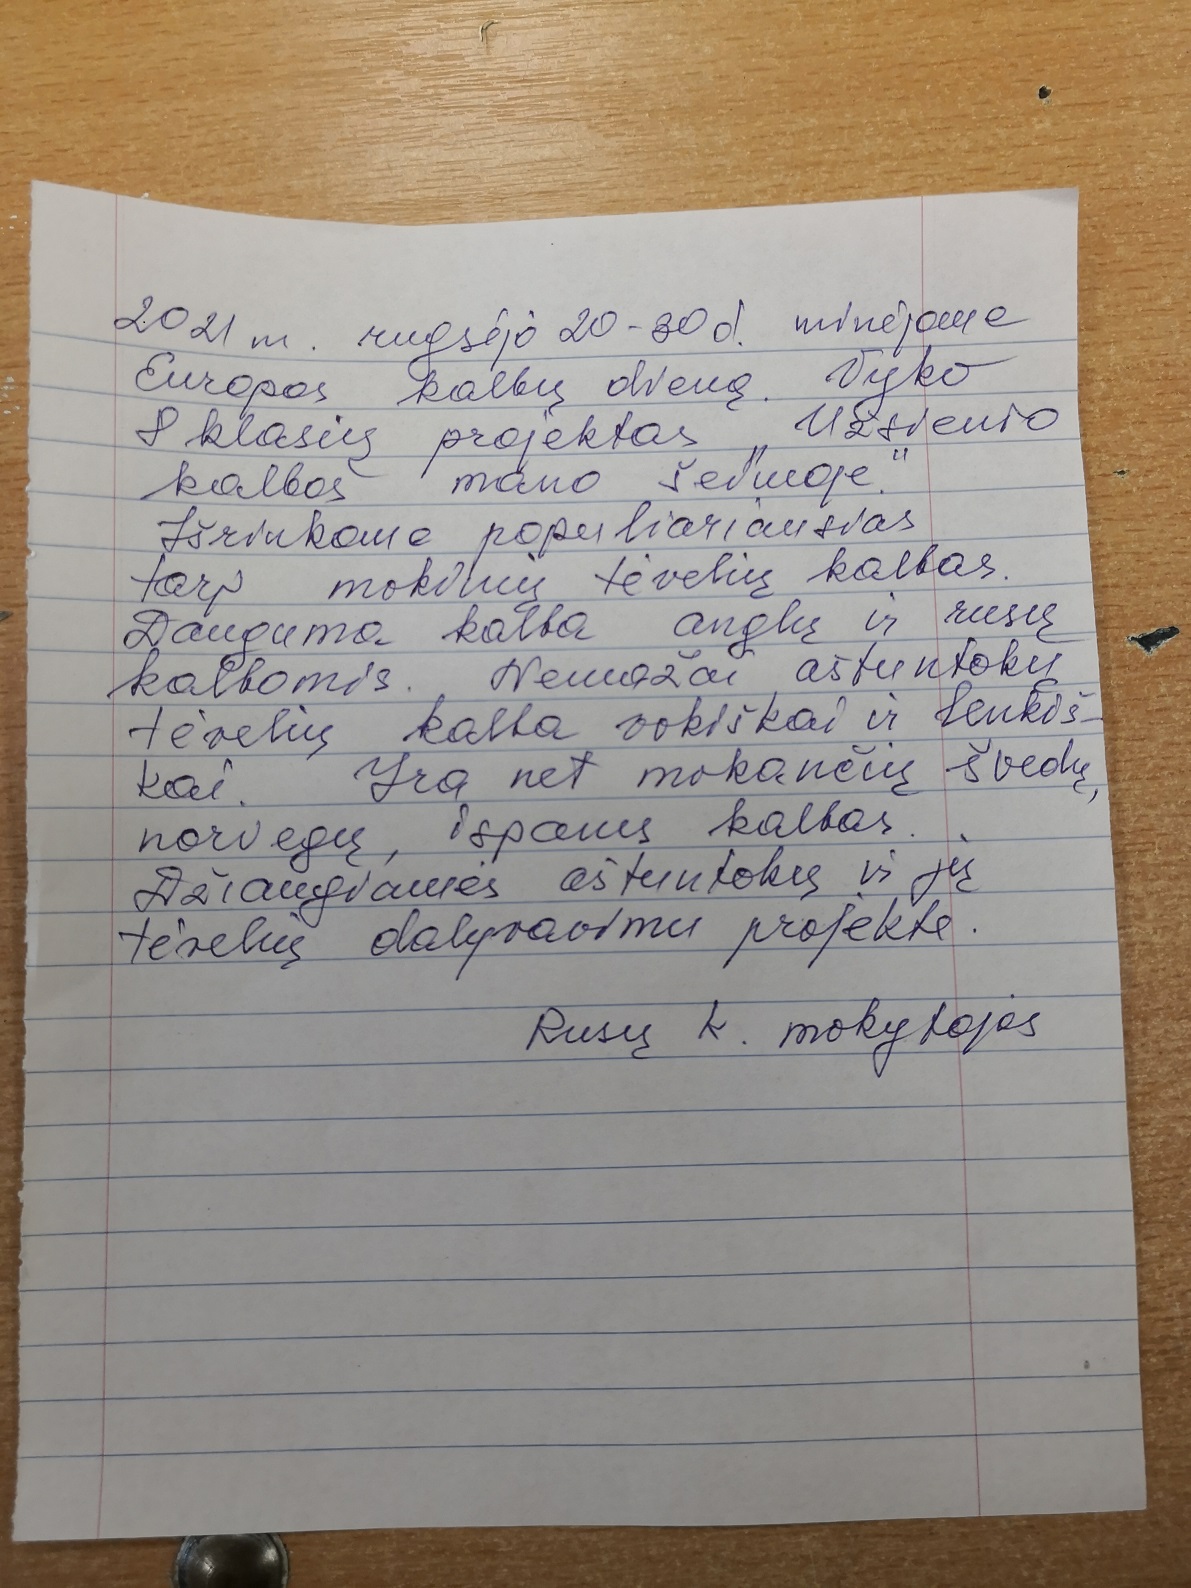 2021 m. rugsėjo 20-30 d. minėjome
Europos kalbų dieną. Vyko
8 klasių projektas „Užsienio
kalbos mano šeimoje“.
Išrinkome populiariausias
tarp mokinių tėvelių kalbas.
Dauguma kalba anglų ir rusų
kalbomis. Nemažai aštuntokų
tėvelių kalba vokiškai ir lenkiš-
kai. Yra net mokančių švedų,
norvegų, ispanų kalbas.
Džiaugiamės aštuntokų ir jų
tėvelių dalyvavimu projekte.
Rusų k. mokytojos